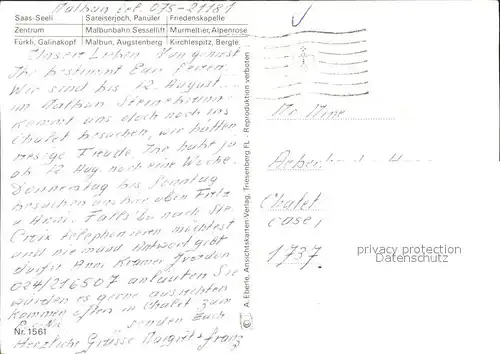 Malbun tel. 075-21181
Saas-Seeli Sareiserjoch, Panüler Friedenskapelle
Zentrum Malbunbahn, Sesselift Murmeltier, Alpenrose
Fürkli, Galinakopf Malbun, Augstenberg Kirchlespitz, Bergle
Unsere Lieben Nun geniest
Ihr bestimmt Eure Ferien.
Wir sind bis 12. August
im Malbun
Kommt uns doch noch ins
Chalet besuchen, wir hätten
riesige Freude. Ihr habt ja
ab 12 Aug. noch eine Woche.
Donnerstag bis Sonntag
besuchen uns hier oben Fritz
u Anni. Falls Du nach Ste.
Croix telephonieren möchtest
und niemand Antwort gibt
darfst Anni Kramer
024/216507 anläuten Sie
würden es gerne ausrichten
kommen öfters in Chalet zum
senden Euch
Herzliche Grüsse Margrit + Franz
Nr. 1561
© A. Eberle, Ansichtskarten-Verlag, Triesenberg FL - Reproduktion verboten
Chalet
1737
privacy protection
Datenschutz